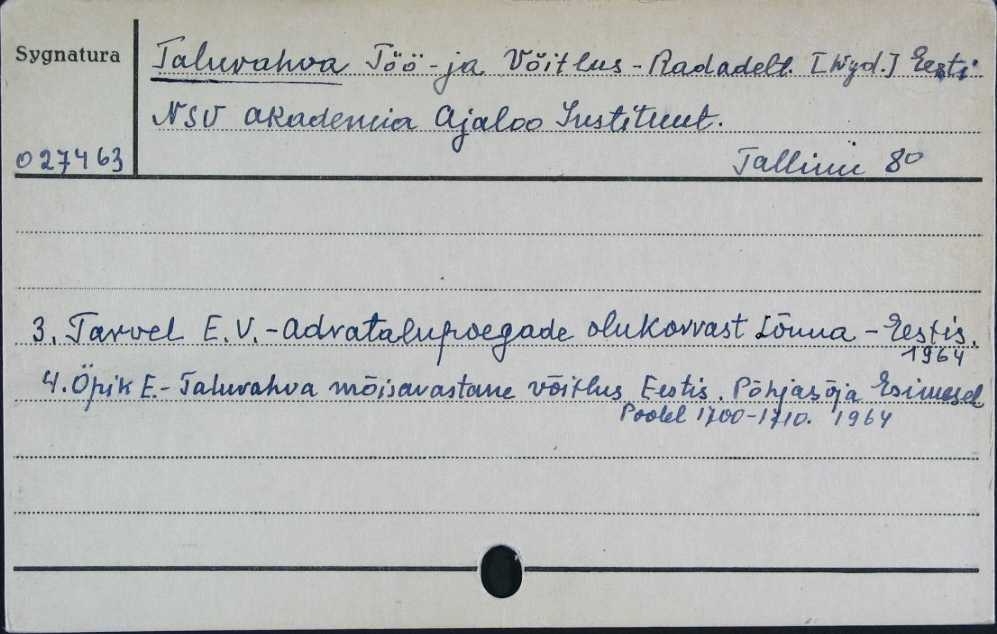 Sygnatura
Taluvahva Töö-ja Võitlus-Radadelt. [Wyd.] Eesti
NSV akademia Ajaloo Instituut.
027463
Tallinn 8°
3. Tarvel E.V.-Adratalupoegade olukorrast Lõuna-Eestis.
1964
4. Öpik E.-Taluvahva mõisavastane võitlus Eestis. Põhjasõja Esimesel
Poolel 1700-1710. 1964